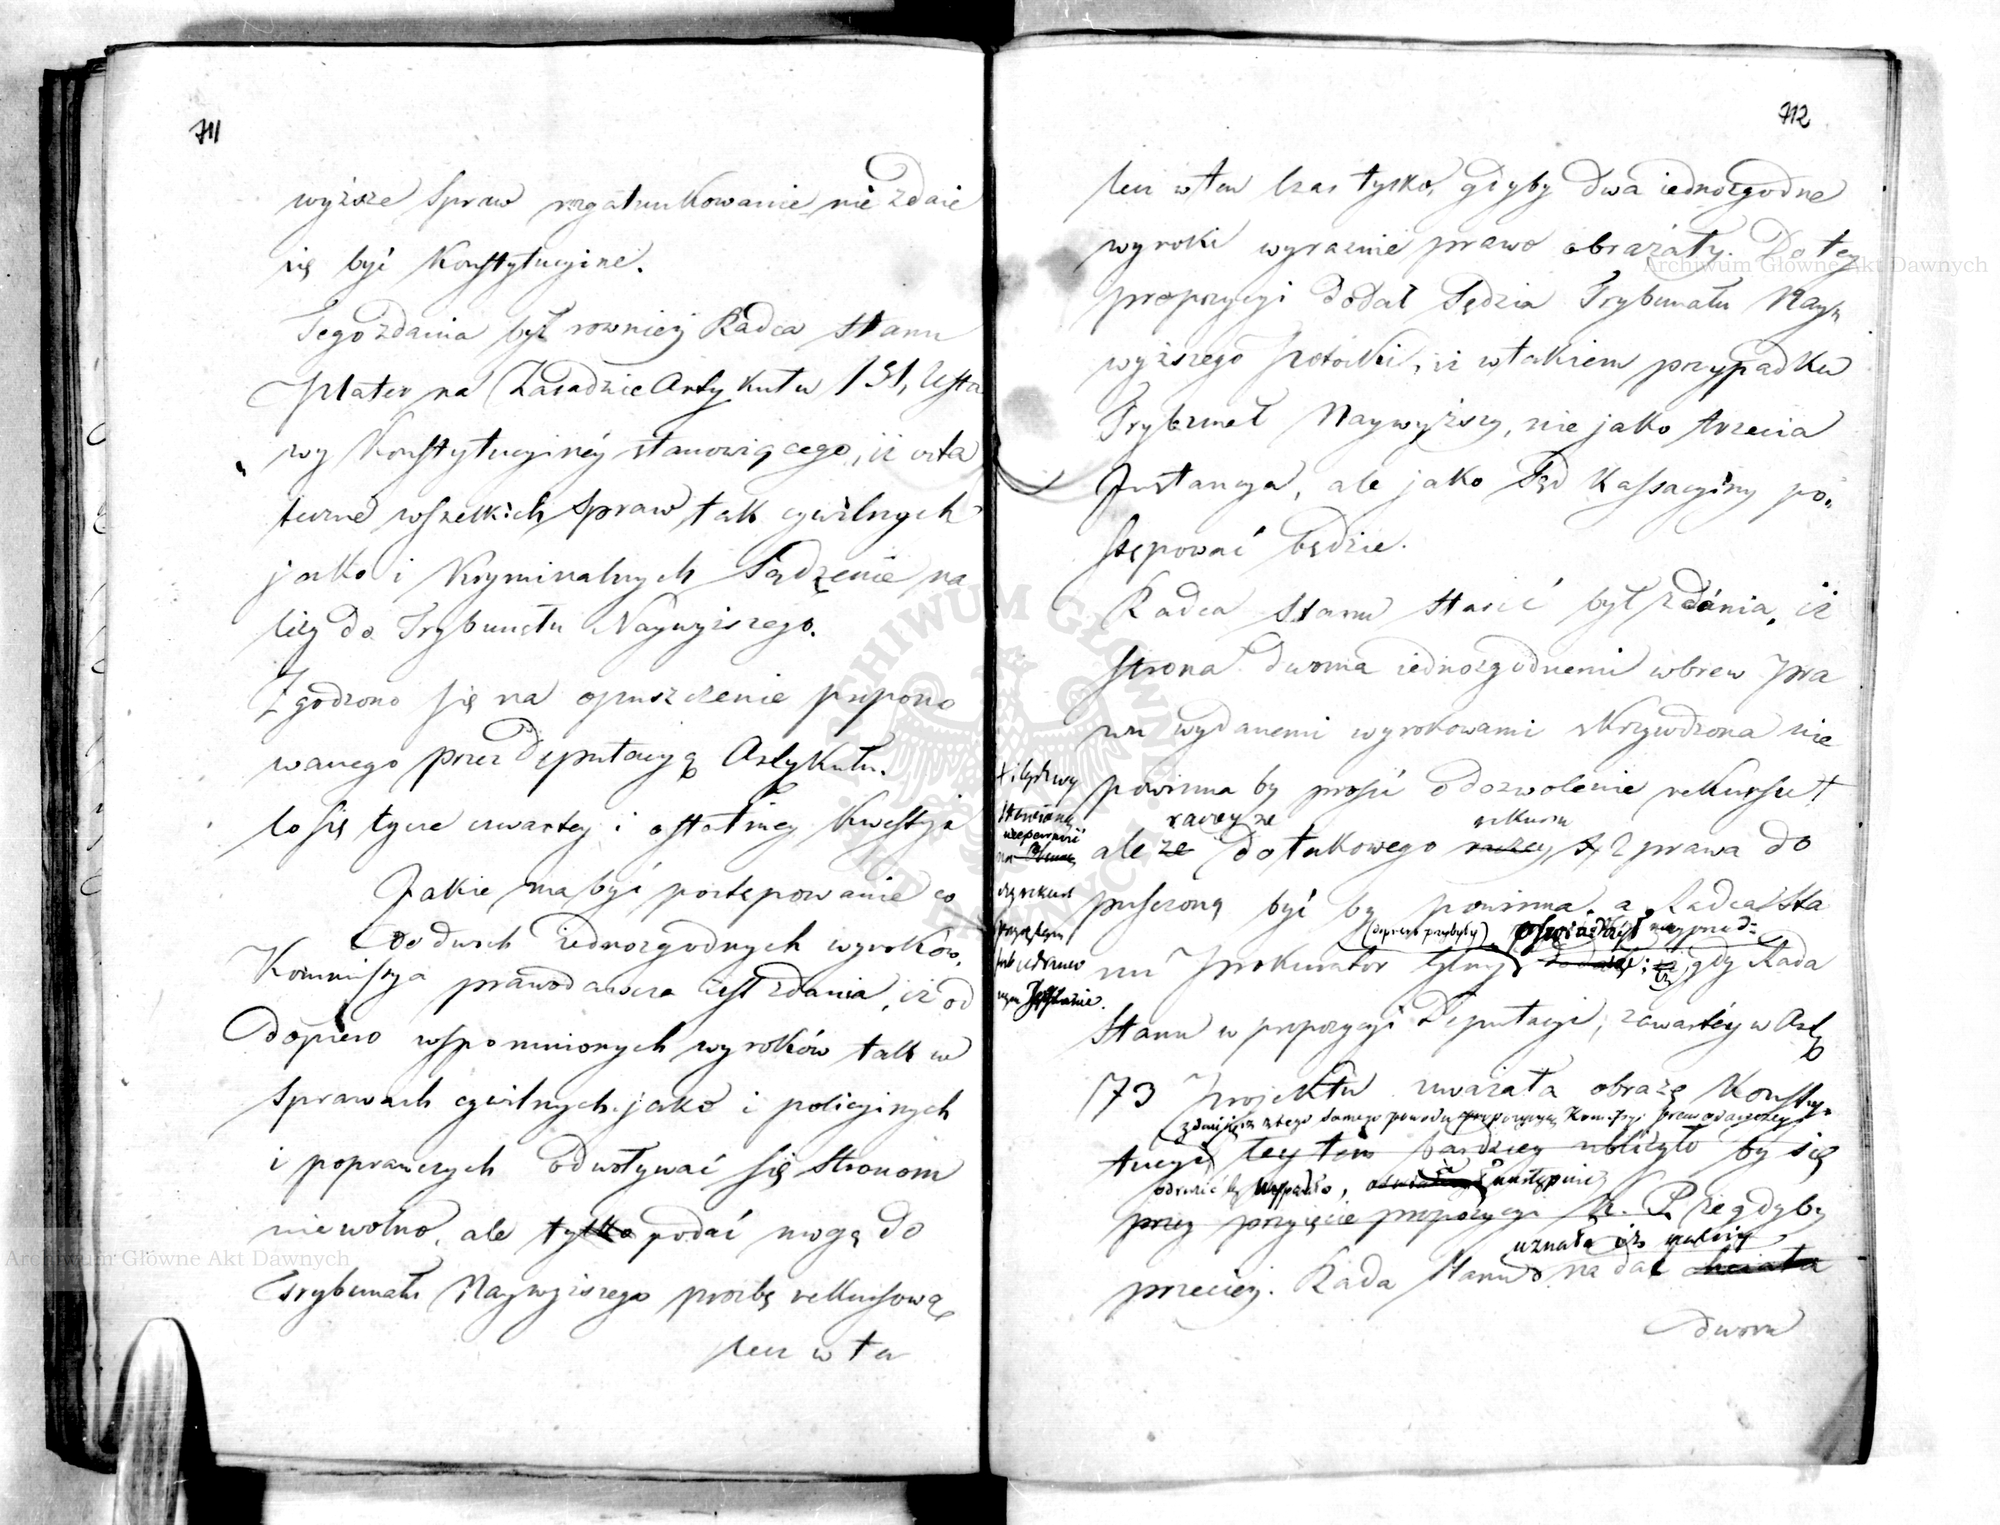 711
wyższe spraw rozgatunkowanie nie zdaie
się być Konstytucyine.
Tego zdania był rownież Radca Stanu
Plater na Zasadzie Artykułu 151, Usta
wy Konstytucyiney stanowiącego, iż osta
teczne wszelkich spraw tak cywilnych
jako i Kryminalnych Sądzenie na
leży do Trybunału Naywyższego.
Zgodzono się na opuszczenie propono
wanego przez Deputacyą Artykułu.
Co się tycze czwartey i ostatniey Kwestyi
Jakie ma być postępowanie co
do dwoch iednozgodnych wyroków,
Kommissya prawodawcza iest zdania, iż od
dopiero wspomnionych wyroków tak w
sprawach cywilnych jako i policyinych
i poprawczych odwoływać się Stronom
nie wolno, ale tylko podać mogą do
Trybunału Naywyższego prozbę rekursową
lecz w ten
712
lecz w ten czas tylko, gdyby dwa iednozgodne
wyroki wyraźnie prawo obrażały. Do tey
propozycyi dodał Sędzia Trybunału Nay„
wyższego, iż w takiem przypadku
Trybunał Naywyższy, nie jako trzecia
Instancya, ale jako Sąd Kassacyiny po„
stępować będzie.
Radca Stanu Stasić był zdania, iż
strona dwoma iednozgodnemi wbrew pra
wu wydanemi wyrokowami skrzywdzona nie
powinna by prosić o dozwolenie rekursu +
raczey że rekursu
ale że do takowego raczey z prawa do
puszczoną być by powinna. a Radca Sta
(dopiero przybyły) oświadczył nayprzod:
nu Prokurator Glny dodał: iż gdy Rada
Stanu w propozycyi Deputacyi, zawartéy w Art
173 Projektu uważała obrazę Konsty„
z tego samego powodu propozycyą Kommissyi prawodawczey
tucyi, tey tém bardziey ubliżyło by się
odrzucić by wypadło, następnie
przez przyięcie propozycyi K. P. że gdyby
uznała iż
przeciez Rada Stanu nadal chciała
dworu